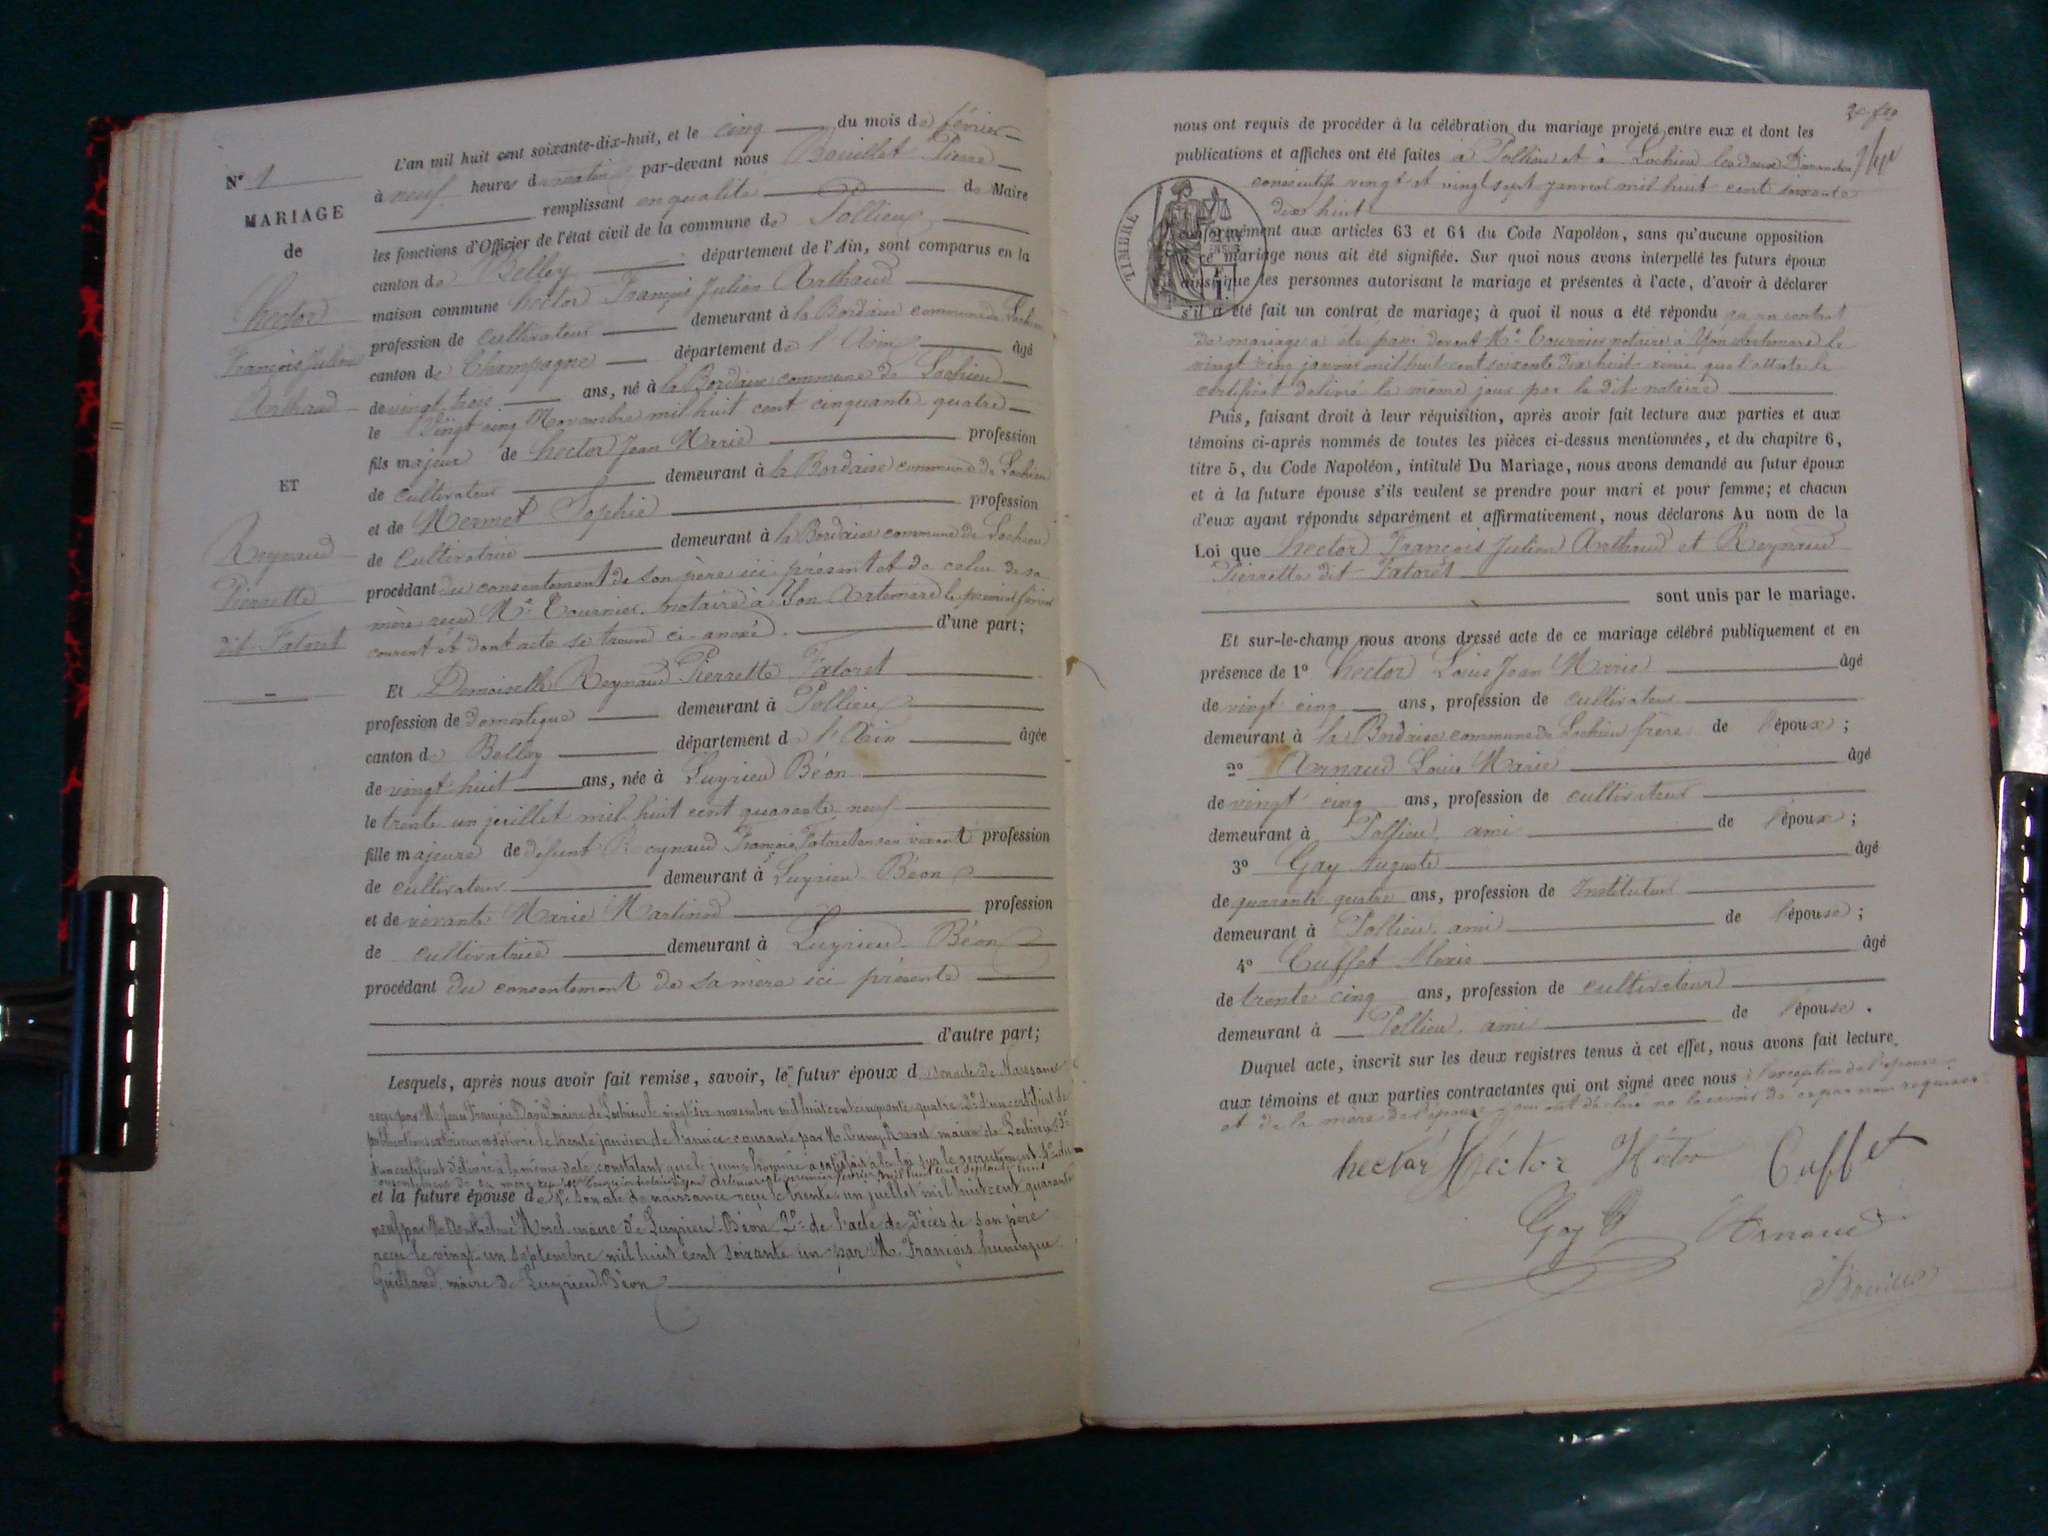 N° 1
MARIAGE
de
hector
François Julien
Arthaud
ET
Reynaud
Pierrette
dit Fatoret
L'an mil huit cent soixante-dix-huit, et le cinq du mois de février
à neuf heures du matin par-devant nous Bouillet Pierre
remplissant en qualité de Maire
les fonctions d'Officier de l'état civil de la commune de Pollieu
canton de Belley département de l'Ain, sont comparus en la
maison commune hector François Julien Arthaud
profession de cultivateur demeurant à la Bordaise commune de Lochieu
canton de Champagne département de l'Ain âgé
de vingt trois ans, né à la Bordaise commune de Lochieu
le Vingt cinq Novembre mil huit cent cinquante quatre
fils majeur de hector Jean Marie profession
de cultivateur demeurant à la Bordaise commune de Lochieu
et de Mermet Sophie profession
de cultivatrice demeurant à la Bordaise commune de Lochieu
procédant du consentement de son père ici présent et de celui de sa
mère reçu Me Tournier notaire à Yon Artemare le premier février
courant et dont acte se trouve ci-annexé. d'une part;
Et Demoiselle Reynaud Pierrette Fatoret
profession de domestique demeurant à Pollieu
canton de Belley département de l'Ain âgée
de vingt huit ans, née à Luyrieu Béon
le trente un juillet mil huit cent quarante neuf
fille majeure de défunt Reynaud François Fatoret en son vivant profession
de cultivateur demeurant à Luyrieu Béon
et de vivante Marie Martinod profession
de cultivatrice demeurant à Luyrieu Béon
procédant du consentement de sa mère ici présente
d'autre part;
Lesquels, après nous avoir fait remise, savoir, le futur époux d son acte de Naissance
reçu par M. Jean François maire de Lochieu le vingt six novembre mil huit cent cinquante quatre 2° d'un certificat de
publications délivré le trente janvier de l'année courante par M. maire de Lochieu 3°
d'un certificat délivré à la même date constatant que le jeune homme a satisfait à la loi sur le recrutement 4° du
consentement de sa mère
et la future épouse de 1° son acte de naissance reçu le trente un juillet mil huit cent quarante
neuf par M. maire de Luyrieu-Béon 2° de l'acte de décès de son père
reçu le vingt un septembre mil huit cent soixante un par M. François
Guilland maire de Luyrieu Béon
nous ont requis de procéder à la célébration du mariage projeté entre eux et dont les
publications et affiches ont été faites à Pollieu et à Lochieu les deux Dimanches
consécutifs vingt et vingt sept janvier mil huit cent soixante
dix huit
TIMBRE
conformément aux articles 63 et 64 du Code Napoléon, sans qu'aucune opposition
à ce mariage nous ait été signifiée. Sur quoi nous avons interpellé les futurs époux
ainsi que les personnes autorisant le mariage et présentes à l'acte, d'avoir à déclarer
s'il a été fait un contrat de mariage; à quoi il nous a été répondu qu'un contrat
de mariage a été passé devant Me Tournier notaire à Yon Artemare le
vingt janvier mil huit cent soixante dix huit ainsi que l'atteste le
certificat délivré le même jour par le dit notaire
Puis, faisant droit à leur réquisition, après avoir fait lecture aux parties et aux
témoins ci-après nommés de toutes les pièces ci-dessus mentionnées, et du chapitre 6,
titre 5, du Code Napoléon, intitulé Du Mariage, nous avons demandé au futur époux
et à la future épouse s'ils veulent se prendre pour mari et pour femme; et chacun
d'eux ayant répondu séparément et affirmativement, nous déclarons Au nom de la
Loi que hector François Julien Arthaud et Reynaud
Pierrette dit Fatoret
sont unis par le mariage.
Et sur-le-champ nous avons dressé acte de ce mariage célébré publiquement et en
présence de 1° hector Louis Jean Marie âgé
de vingt cinq ans, profession de cultivateur
demeurant à la Bordaise commune de Lochieu frère de l'époux;
2° Arnaud Louis Marie âgé
de vingt cinq ans, profession de cultivateur
demeurant à Pollieu ami de l'époux;
3° Gay Auguste âgé
de quarante quatre ans, profession de Instituteur
demeurant à Pollieu ami de l'épouse;
4° Cuffet Alexis âgé
de trente cinq ans, profession de cultivateur
demeurant à Pollieu ami de l'épouse.
Duquel acte, inscrit sur les deux registres tenus à cet effet, nous avons fait lecture
aux témoins et aux parties contractantes qui ont signé avec nous à l'exception de l'épouse
et de la mère de l'épouse qui ont déclaré ne le savoir de ce par nous requises
hector Héctor Hector Cuffet
Gay A Arnaud
Bouillet